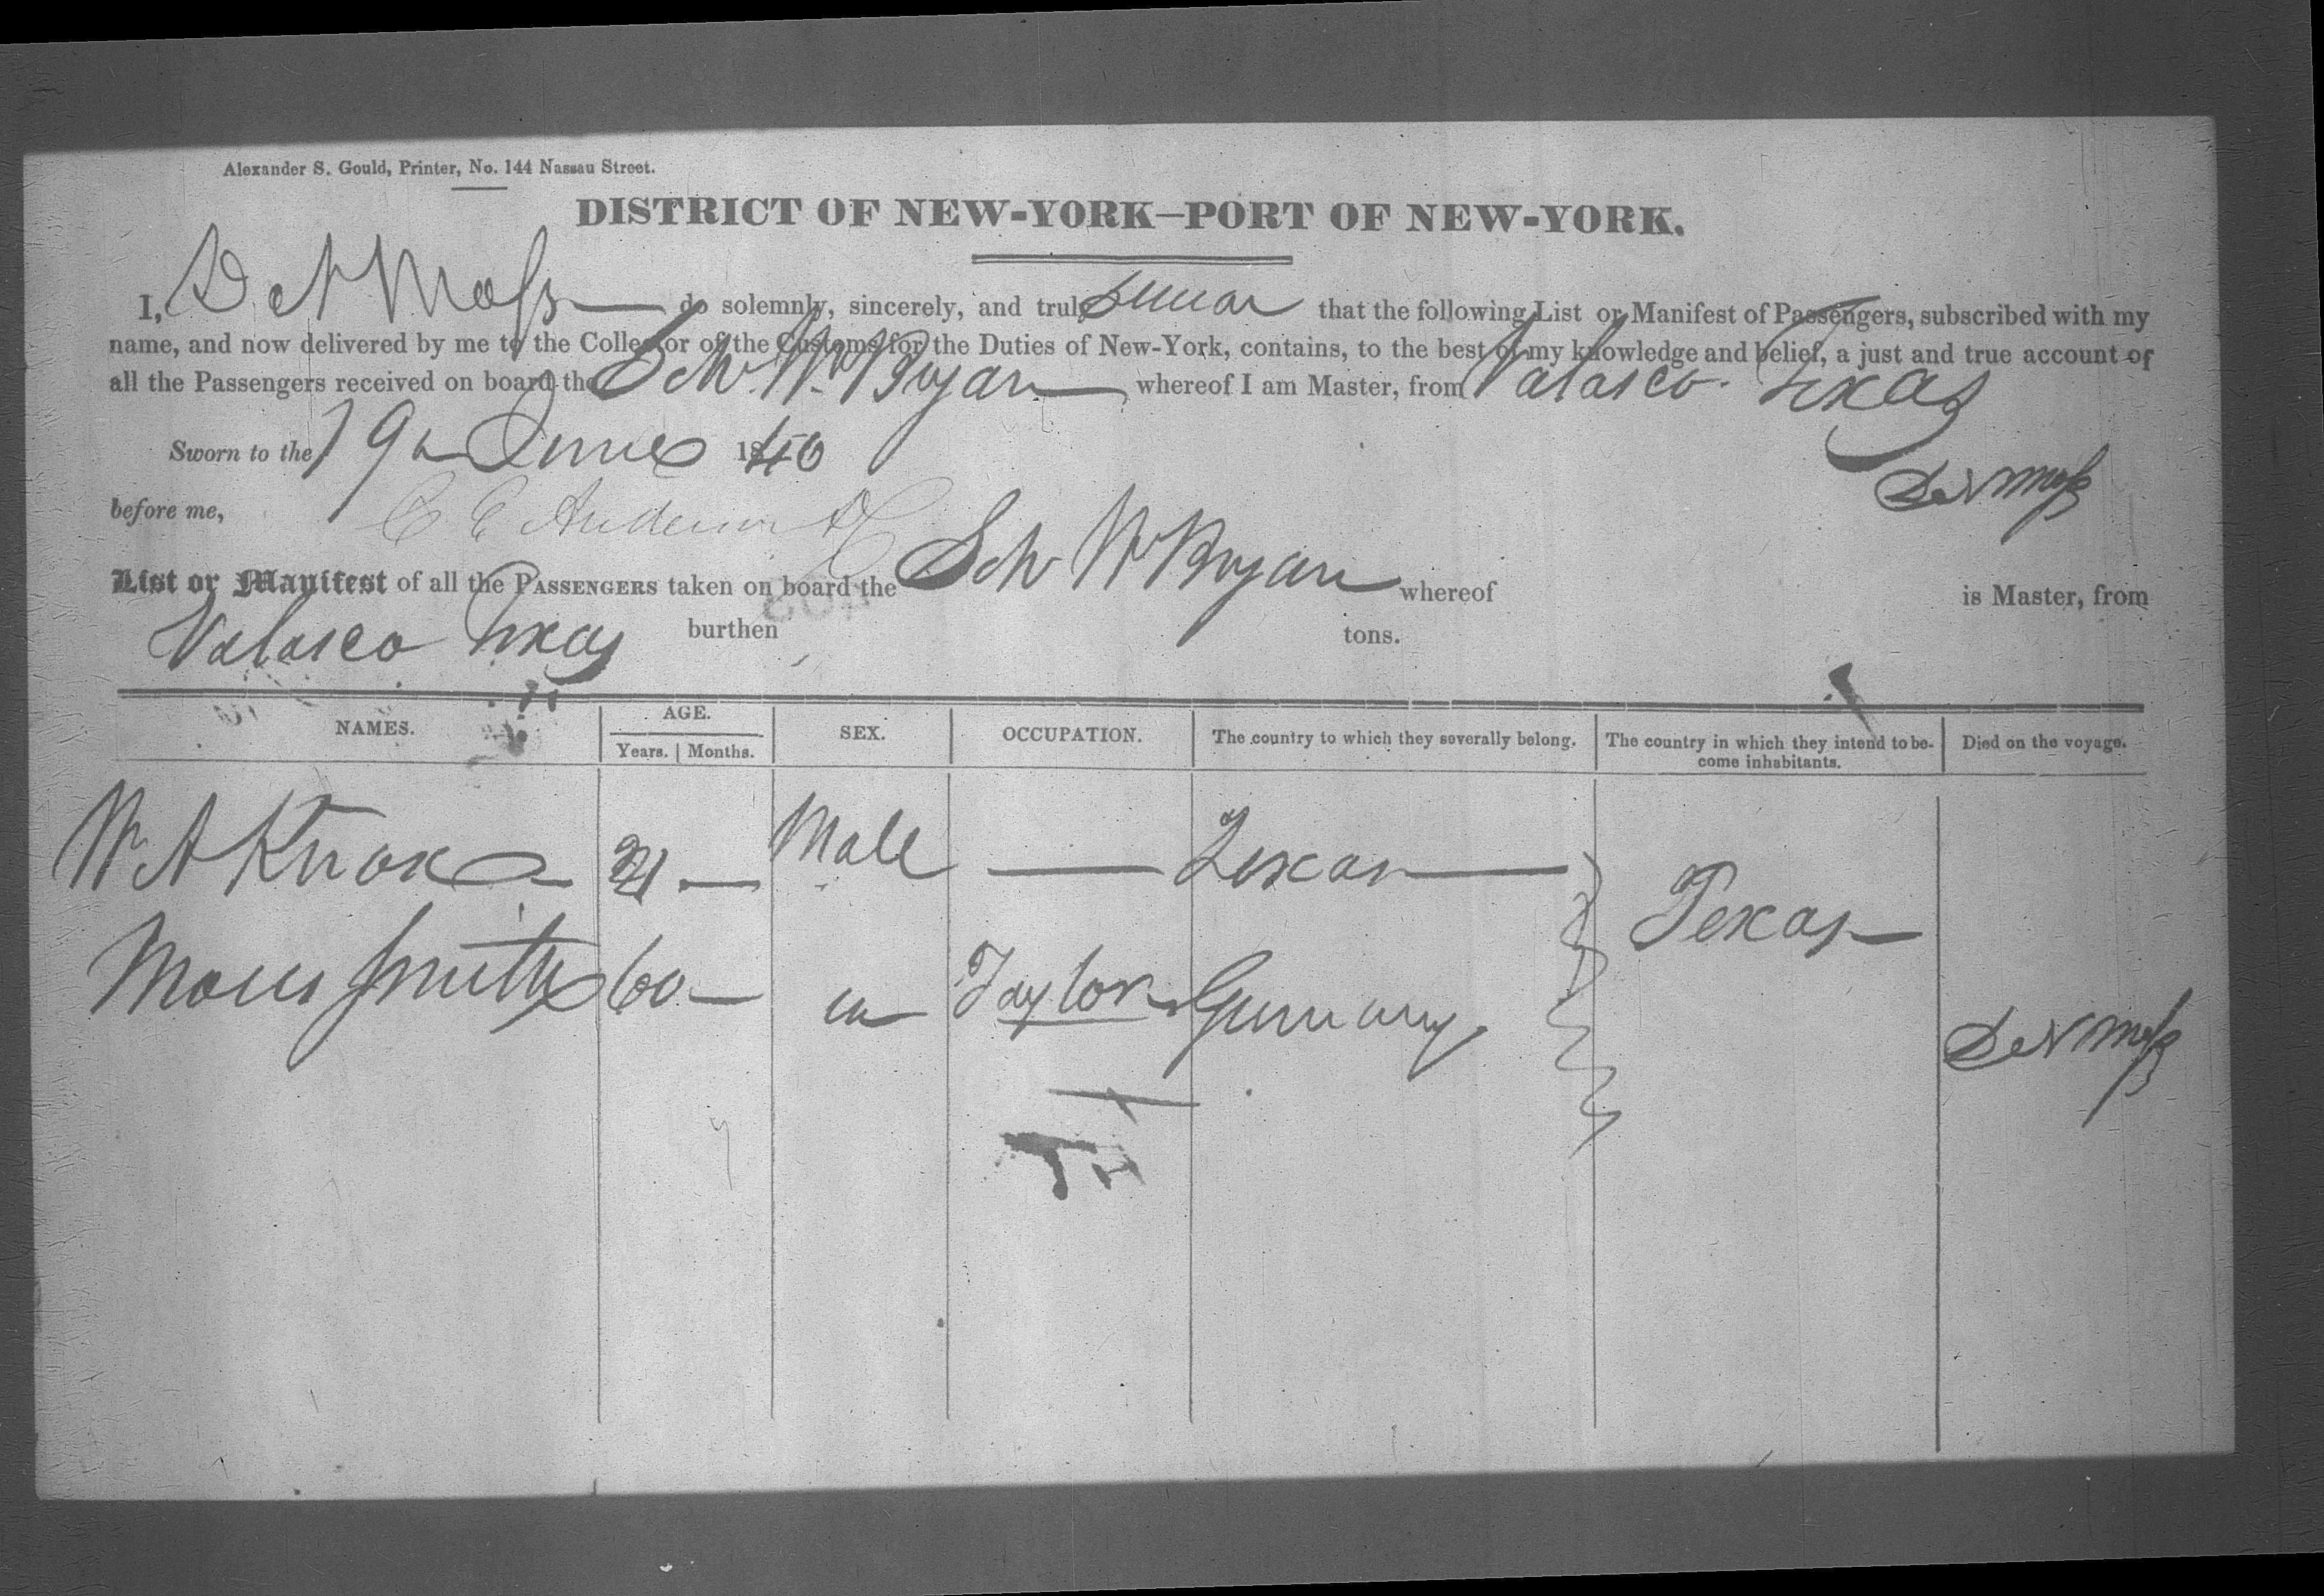 Alexander S. Gould, Printer, No. 144 Nassau Street.
DISTRICT OF NEW-YORK—PORT OF NEW-YORK.
I, D N Moss do solemnly, sincerely, and truly swear that the following List or Manifest of Passengers, subscribed with my
name, and now delivered by me to the Collector of the Customs for the Duties of New-York, contains, to the best of my knowledge and belief, a just and true account of
all the Passengers received on board the Schr Wm Bryan whereof I am Master, from Valasco Texas
Sworn to the 19th June 1840
before me, C C Anderson
List or Manifest of all the PASSENGERS taken on board the Schr Wm Bryan whereof is Master, from
Valasco Texas burthen tons.
NAMES. AGE. Years. Months. SEX. OCCUPATION. The country to which they severally belong. The country in which they intend to become inhabitants. Died on the voyage.
W A Knox 21 — Male — Texas Texas
Moses Smith 60 — Taylor Germany